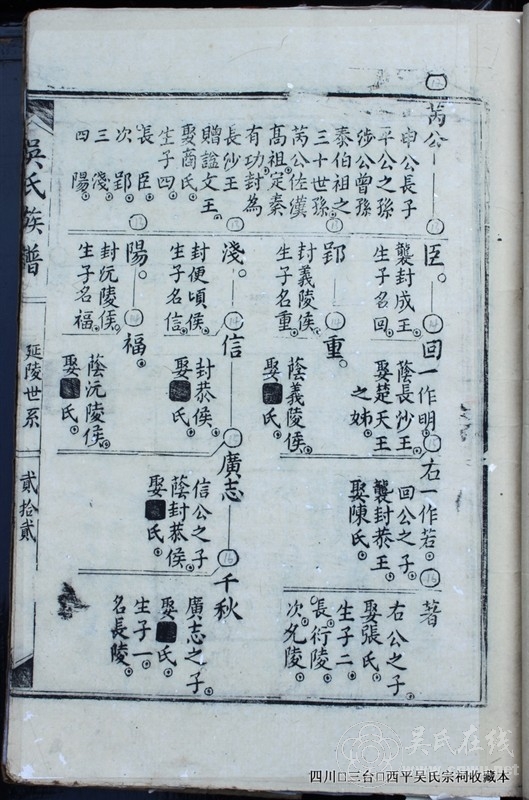 芮公
申公長子
平公之孫
涉公曾孫
泰伯祖之
三十世孫
芮公佐漢
高祖定秦
有功封為
長沙王
贈諡文王
娶商氏
生子四
長臣
次郢
三淺
四陽
臣
襲封成王
生子名回
郢
封義陵侯
生子名重
淺
封便頃侯
生子名信
陽
封沅陵侯
生子名福
回一作明
蔭長沙王
娶楚天王
之姊
重
蔭義陵侯
娶氏
信
封恭侯
娶氏
福
蔭沅陵侯
娶氏
右一作若
回公之子
襲封恭王
娶陳氏
廣志
信公之子
蔭封恭侯
娶氏
著
右公之子
娶張氏
生子二
長衍陵
次允陵
千秋
廣志之子
娶氏
生子一
名長陵
吳氏族譜
延陵世系
貳拾貳
吴氏在线
四川□三台□西平吴氏宗祠收藏本